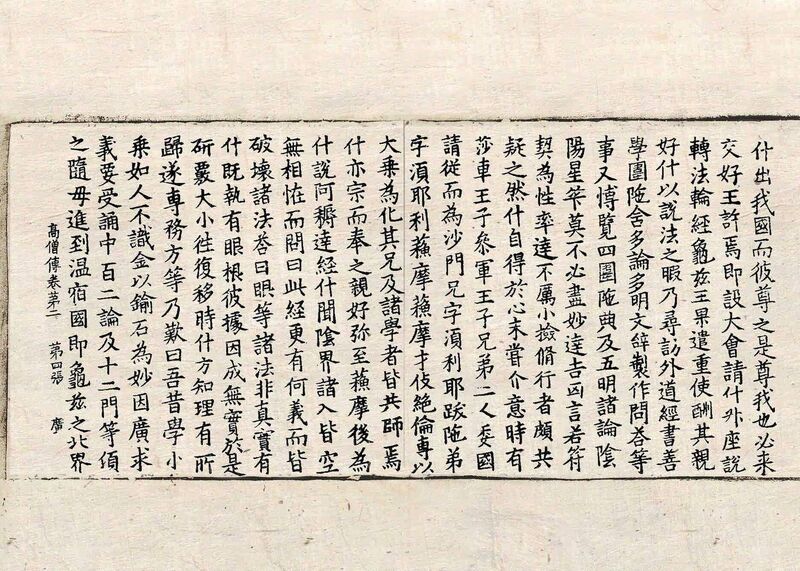 什出我國而彼尊之是尊我也必来
交好王許焉即設大會請什升座說
轉法輪經龜玆王果遣重使酬其親
好什以說法之暇乃尋訪外道經書善
學圍陁舍多論多明文辝製作問荅等
事又愽覽四圍陁典及五明諸論陰
陽星筭莫不必盡妙達吉凶言若符
契為性率達不厲小撿脩行者頗共
疑之然什自得於心未甞介意時有
莎車王子叅軍王子兄弟二人委國
請從而為沙門兄字湏利耶跋陁弟
字湏耶利蘓摩蘓摩才伎絶倫專以
大乗為化其兄及諸學者皆共師焉
什亦宗而奉之親好弥至蘓摩後為
什說阿耨達經什聞陰界諸入皆空
無相恠而問曰此經更有何義而皆
破壞諸法荅曰眼等諸法非真實有
什既執有眼根彼據因成無實於是
研覈大小往復移時什方知理有所
歸遂專務方等乃歎曰吾昔學小
乗如人不識金以鍮石為妙因廣求
義要受誦中百二論及十二門等湏
之隨母進到温宿國即龜玆之北界
高僧傳卷苐二 苐四張 廣